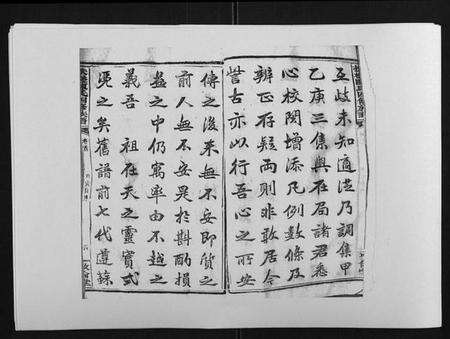 互歧未知適從乃調集甲
乙庚三集與在局諸君悉
心校閱增添凡例數條及
辨正存疑兩則非敢居今
訾古亦以行吾心之所安
傳之後來無不安即質之
前人無不安是於斟酌損
益之中仍寓率由不越之
義吾 祖在天之靈實式
憑之矣舊譜前七代遵蘇